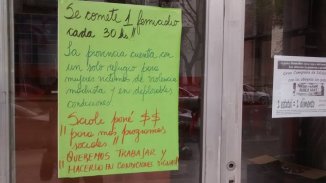 Se comete 1 femicidio
cada 30 hs
La provincia cuenta con
un solo refugio para
mujeres víctimas de violencia
machista y en deplorables
condiciones!
Scioli poné $$
para más programas
sociales"
¡¡QUEREMOS TRABAJAR Y
HACERLO EN CONDICIONES DIGNAS!!